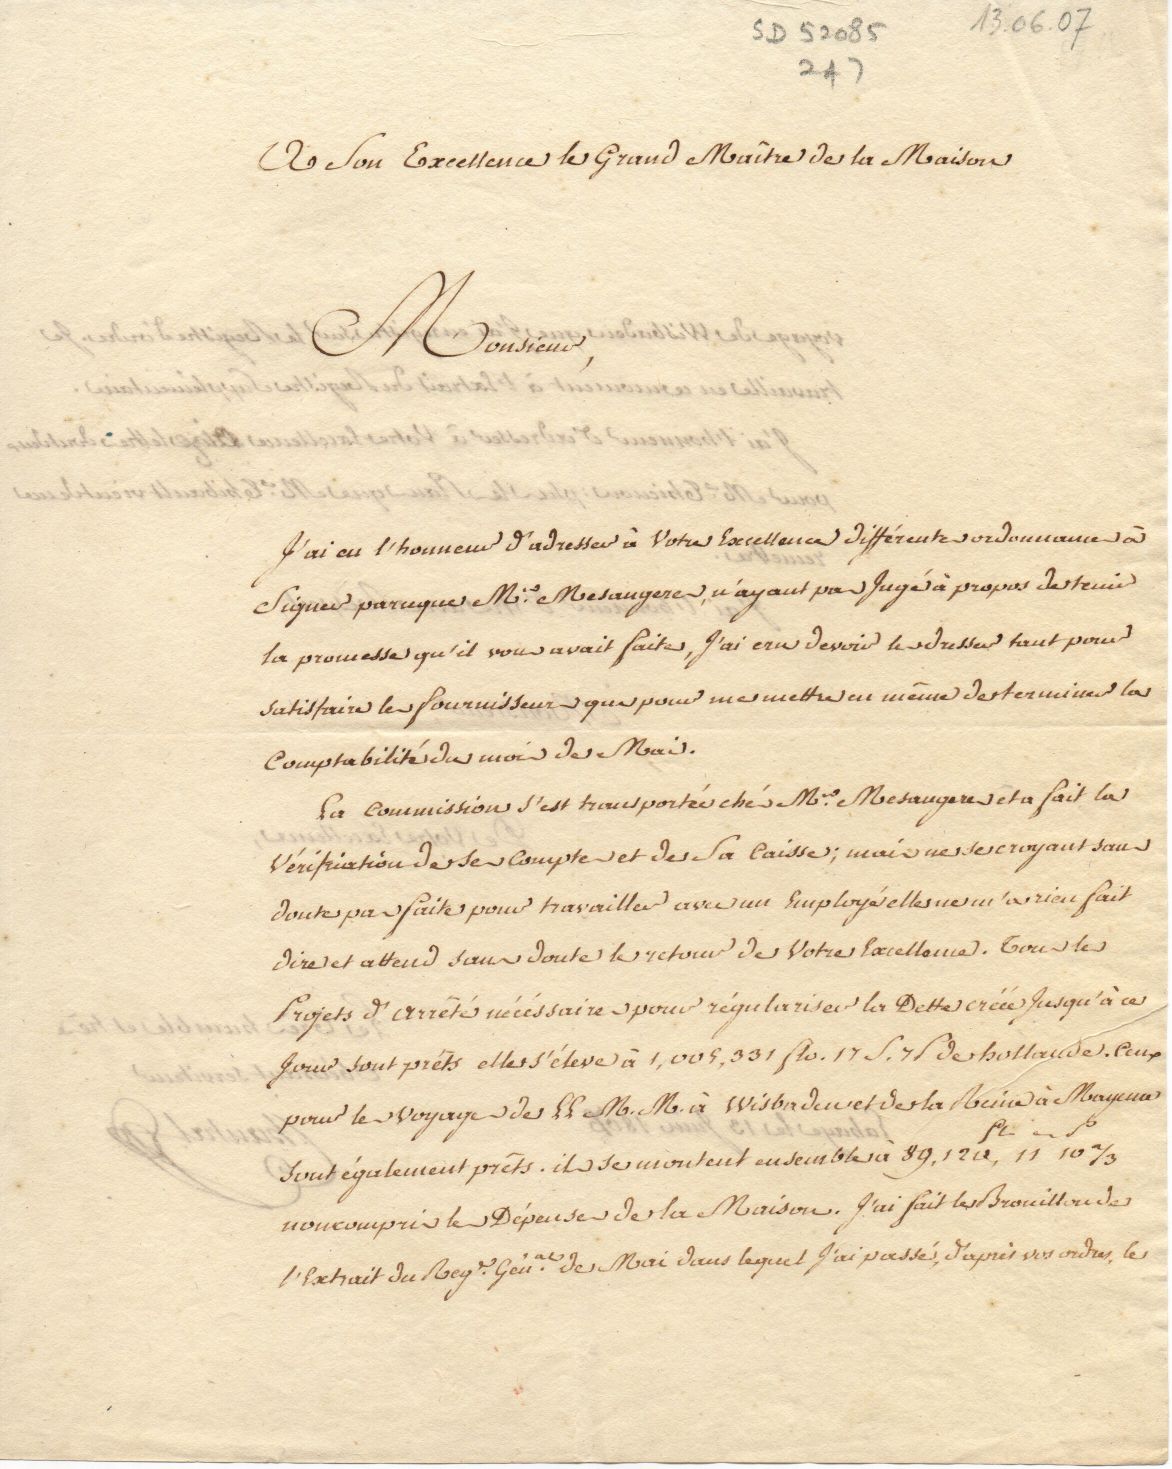 SD 52085
247
13.06.07
A Son Excellence le Grand Maître de la Maison
Monsieur,
J'ai eu l'honneur d'adresser à Votre Excellence différentes ordonnances à
Signer parceque Mr. Mesangere, n'ayant pas Jugé à propos de tenir
la promesse qu'il vous avait faite, J'ai cru devoir les dresser tant pour
satisfaire les fournisseurs que pour me mettre en même de terminer la
Comptabilité du mois de Mai.
La Commission s'est transportée chés Mr. Mesangere et a fait la
Vérification de ses Comptes et de Sa Caisse; mais ne se croyant sans
doute pas faite pour travailler avec un Employé elle ne m'a rien fait
dire et attend sans doute le retour de Votre Excellence. Tous les
Projets d'Arrêtés nécéssaires pour régulariser la Dette créée Jusqu'à ce
Jour sont prêts elle s'éleve à 1,005,331 flo. 17 S. 7 d de hollande. Ceux
pour les Voyages de LL M. M. à Wisbaden et de la Reine à Mayence
sont également prêts. ils se montent ensemble à 89,120, 11 10 2/3
non compris les Dépenses de la Maison. J'ai fait le Brouillon de
l'Extrait du Regre. Génal. de Mai dans lequel J'ai passé, d'après vos ordres, le